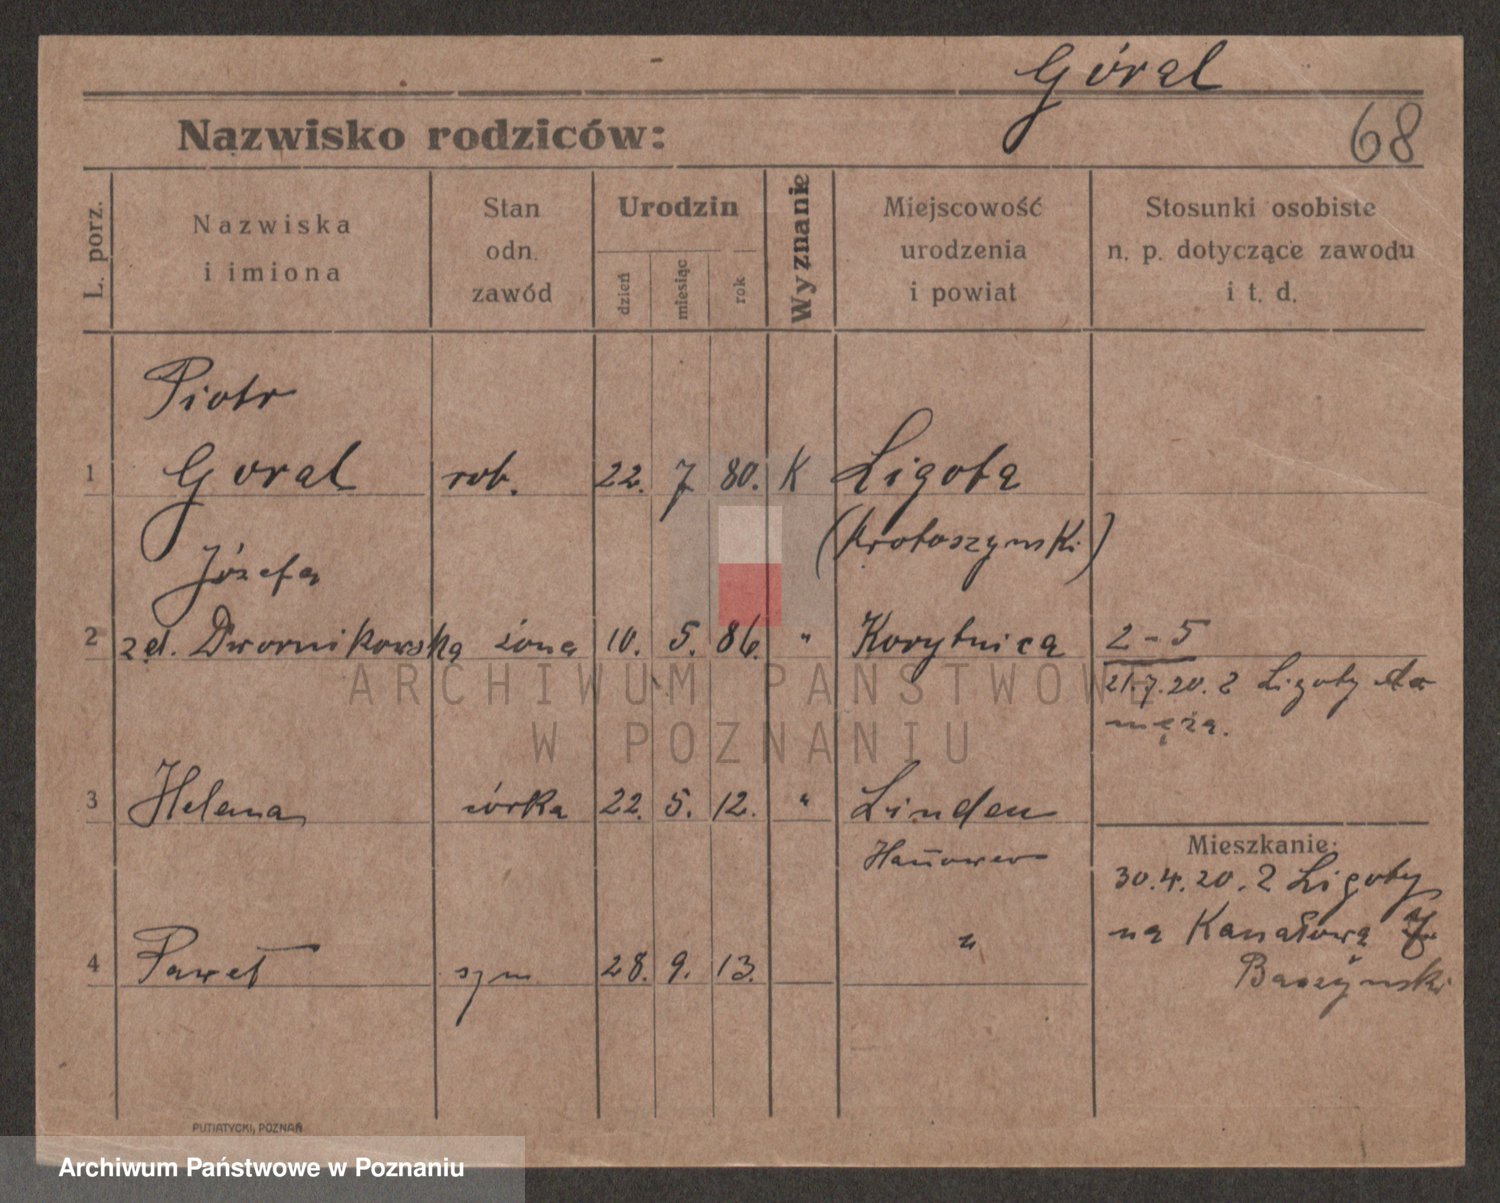 Góral
68
Nazwisko rodziców:
L. porz.
Nazwiska
i imiona
Stan
odn.
zawód
Urodzin
dzień
miesiąc
rok
Wyznanie
Miejscowość
urodzenia
i powiat
Stosunki osobiste
n. p. dotyczące zawodu
i t. d.
Piotr
1 Goral rob. 22. 7 80. K Ligota
(Krotoszynski)
Józefa
2 zd. Dwornikowska żona 10. 5. 86. " Korytnica 2-5
21.7.20. z Ligoty do
męża.
3 Helena córka 22. 5. 12. " Linden
Hannower
Mieszkanie:
30.4.20. z Ligoty
na Kanałową
4 Paweł syn 28. 9. 13. "
Baszynski
PUTIATYCKI, POZNAŃ
ARCHIWUM PAŃSTWOWE
W POZNANIU
Archiwum Państwowe w Poznaniu